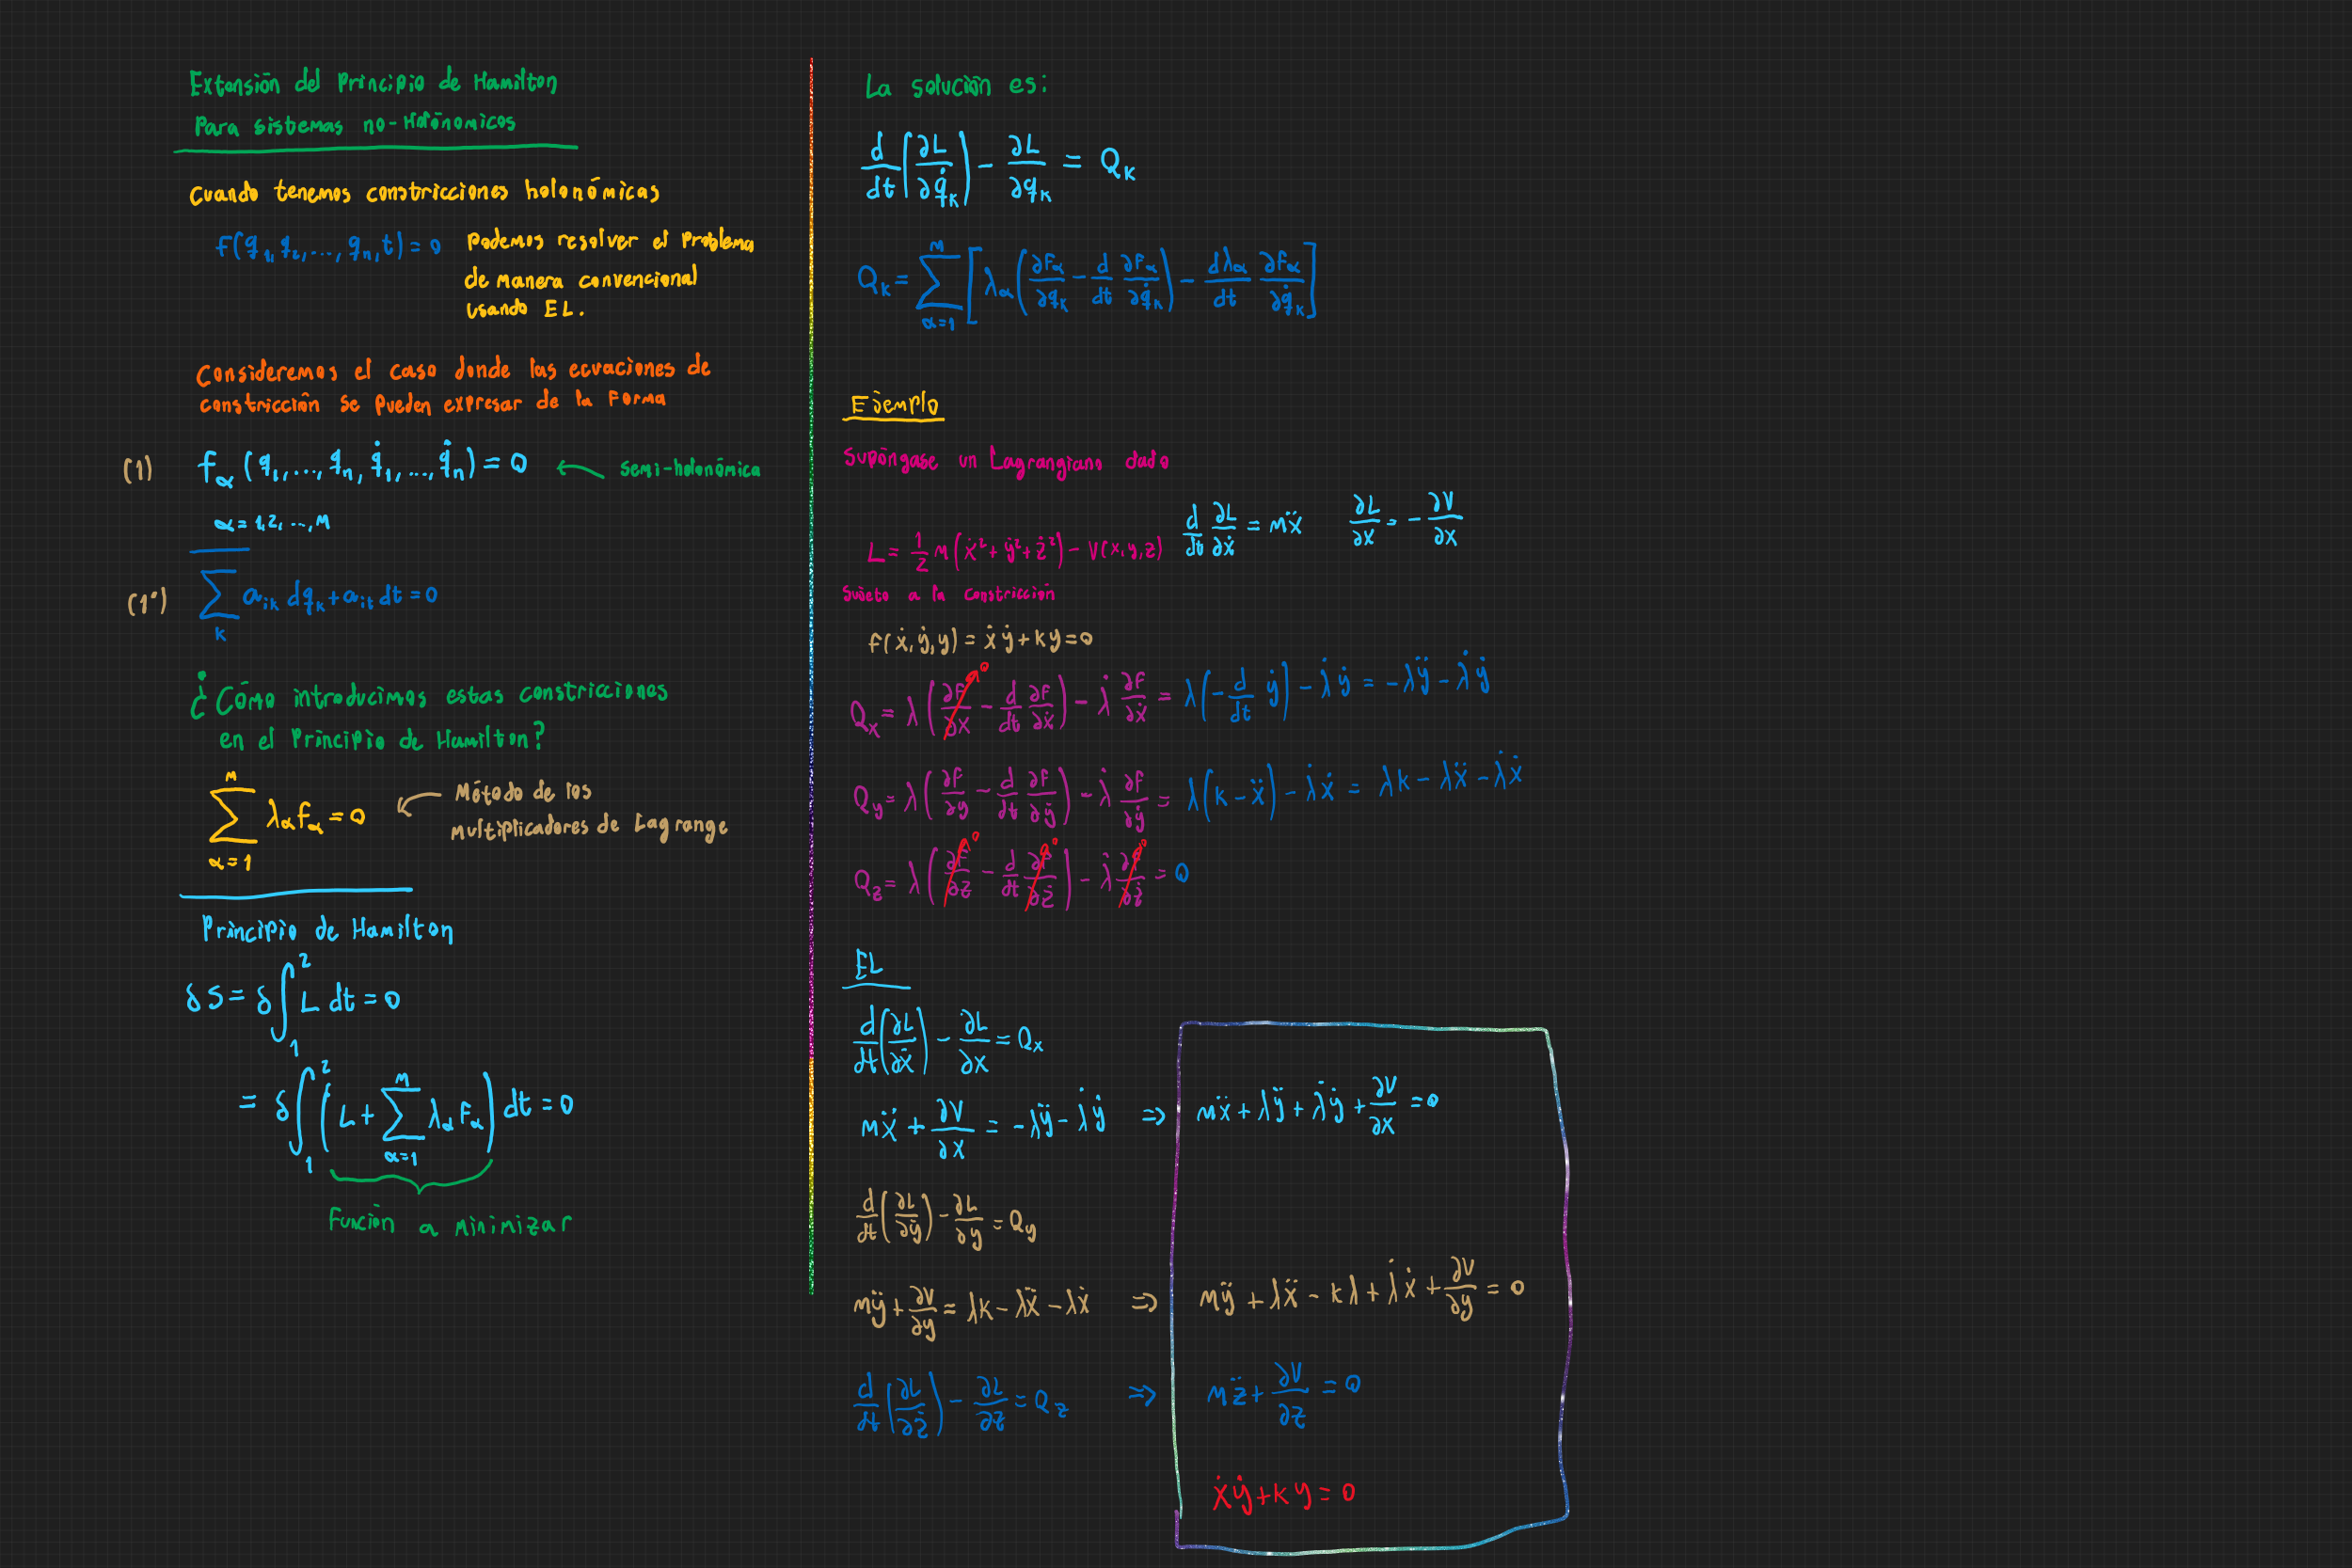 Extensión del Principio de Hamilton
Para sistemas no-Holónomicos
Cuando tenemos constricciones holonómicas
f(q₁,q₂,...,qₙ,t)=0 Podemos resolver el Problema
de manera convencional
usando EL.
Consideremos el caso donde las ecuaciones de
constricción se pueden expresar de la Forma
(1) f_α(q₁,...,qₙ,q̇₁,...,q̇ₙ)=0 ← semi-holonómica
α=1,2,...,M
(1') ∑_k a_{ik} dq_k + a_{it} dt = 0
¿Cómo introducimos estas constricciones
en el Principio de Hamilton?
∑_{α=1}^{M} λ_α f_α = 0 ← Método de los
multiplicadores de Lagrange
Principio de Hamilton
δS = δ∫₁² L dt = 0
= δ∫₁² (L + ∑_{α=1}^{M} λ_α f_α) dt = 0
Función a minimizar
La solución es:
d/dt(∂L/∂q̇_k) - ∂L/∂q_k = Q_k
Q_k = ∑_{α=1}^{M} [λ_α(∂f_α/∂q_k - d/dt ∂f_α/∂q̇_k) - dλ_α/dt ∂f_α/∂q̇_k]
Ejemplo
Supóngase un Lagrangiano dado
L = 1/2 m(ẋ²+ẏ²+ż²) - V(x,y,z) d/dt ∂L/∂ẋ = mẍ ∂L/∂x = -∂V/∂x
Sujeto a la constricción
f(ẋ,ẏ,y) = ẋẏ+ky=0
Q_x = λ(∂f/∂x⁰ - d/dt ∂f/∂ẋ) - λ̇ ∂f/∂ẋ = λ(-d/dt ẏ) - λ̇ẏ = -λÿ - λ̇ẏ
Q_y = λ(∂f/∂y - d/dt ∂f/∂ẏ) - λ̇ ∂f/∂ẏ = λ(k-ẍ) - λ̇ẋ = λk - λẍ - λ̇ẋ
Q_z = λ(∂f/∂z⁰ - d/dt ∂f/∂ż⁰) - λ̇ ∂f/∂ż⁰ = 0
EL
d/dt(∂L/∂ẋ) - ∂L/∂x = Q_x
mẍ + ∂V/∂x = -λÿ - λ̇ẏ ⇒ mẍ + λÿ + λ̇ẏ + ∂V/∂x = 0
d/dt(∂L/∂ẏ) - ∂L/∂y = Q_y
mÿ + ∂V/∂y = λk - λẍ - λẋ ⇒ mÿ + λẍ - kλ + λ̇ẋ + ∂V/∂y = 0
d/dt(∂L/∂ż) - ∂L/∂z = Q_z ⇒ mz̈ + ∂V/∂z = 0
ẋẏ+ky=0